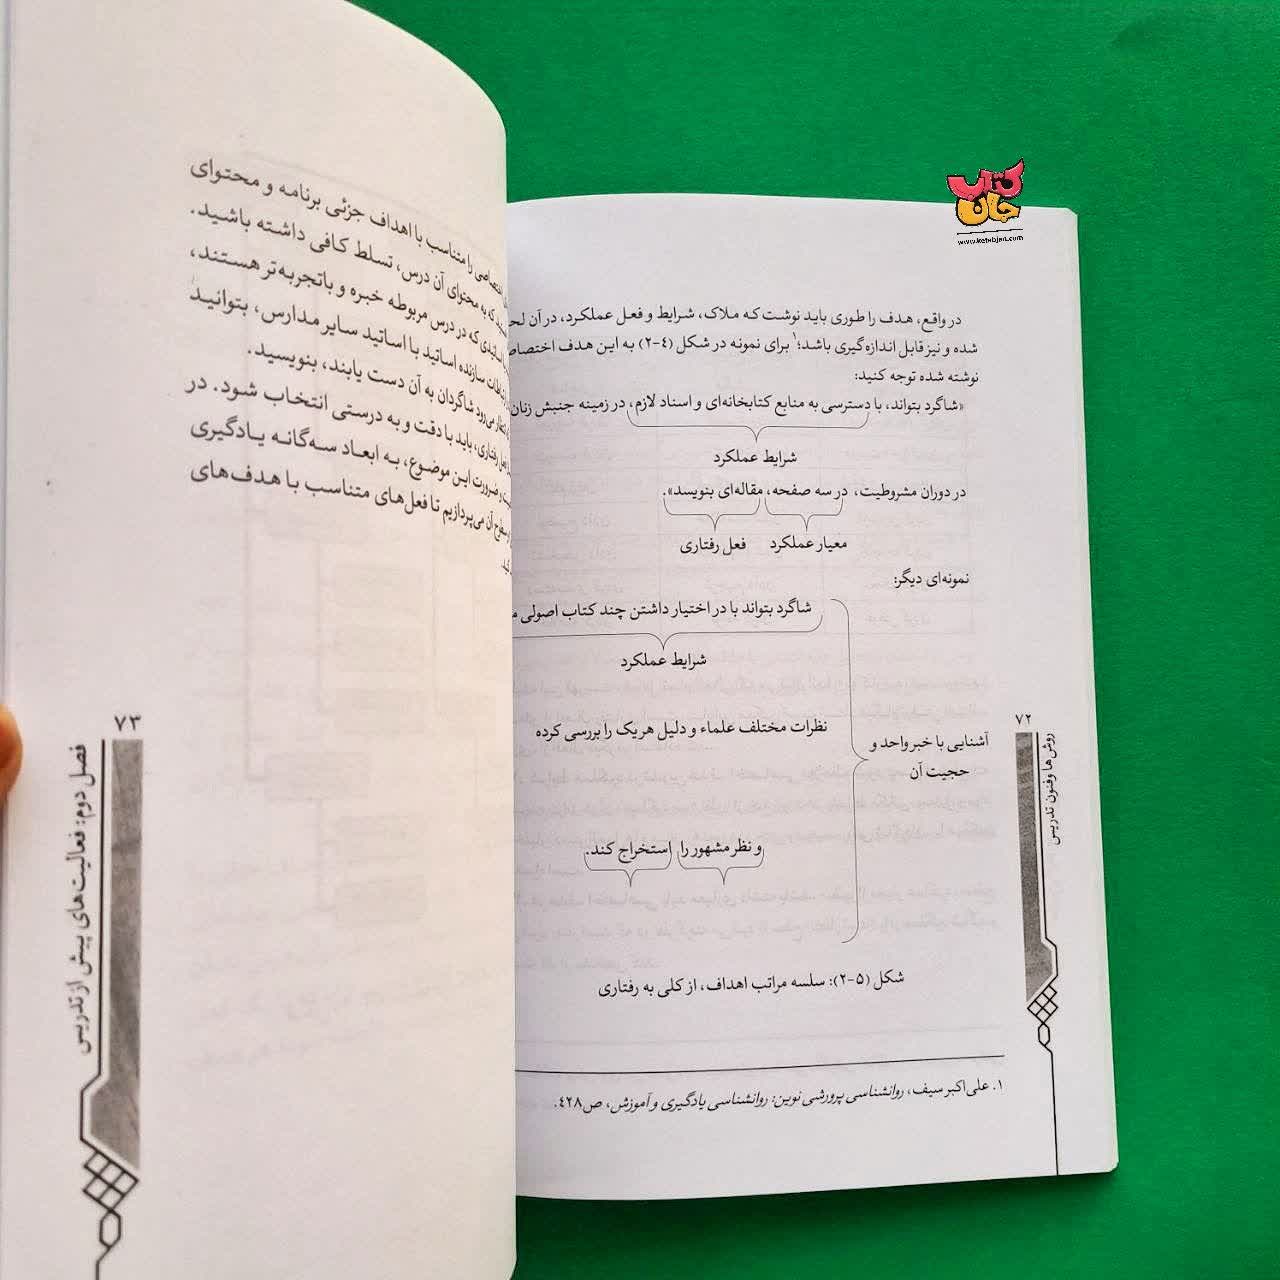 کتاب
جان
www.ketabjan.com
در واقع، هدف را طوری باید نوشت که ملاک، شرایط و فعل عملکرد، در آن
شده و نیز قابل اندازه‌گیری باشد؛۱ برای نمونه در شکل (۴-۲) به این هدف
نوشته شده توجه کنید:
«شاگرد بتواند، با دسترسی به منابع کتابخانه‌ای و اسناد لازم، در زمینه جنبش زنان
شرایط عملکرد
در دوران مشروطیت، در سه صفحه، مقاله‌ای بنویسد».
معیار عملکرد فعل رفتاری
نمونه‌ای دیگر:
شاگرد بتواند با در اختیار داشتن چند کتاب اصولی
شرایط عملکرد
نظرات مختلف علماء و دلیل هر یک را بررسی کرده
آشنایی با خبر واحد و
حجیت آن
و نظر مشهور را استخراج کند.
شکل (۵-۲): سلسه مراتب اهداف، از کلی به رفتاری
۱. علی‌اکبر سیف، روانشناسی پرورشی نوین: روانشناسی یادگیری و آموزش، ص۴۲۸.
۷۲
روش‌ها و فنون تدریس
اختصاصی را متناسب با اهداف جزئی برنامه و محتوای
که به محتوای آن درس، تسلط کافی داشته باشید.
اساتیدی که در درس مربوطه خبره و باتجربه‌تر هستند،
سازنده اساتید با اساتید سایر مدارس، بتوانید
می‌رود شاگردان به آن دست یابند، بنویسید.
رفتاری، باید با دقت و به درستی انتخاب شود. در
و ضرورت این موضوع، به ابعاد سه‌گانه یادگیری
و سطوح آن می‌پردازیم تا فعل‌های متناسب با هدف‌های
۷۳
فصل دوم: فعالیت‌های پیش از تدریس